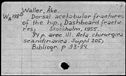 Waller, Åke.
Dorsal acetabular fractures
of the hip. (Dashboard fractu-
res). Stockholm, 1955.
94 p. illus. (Acta chirurgica
scandinavica. Suppl. 205)
Bibliogr. p. 93-94.